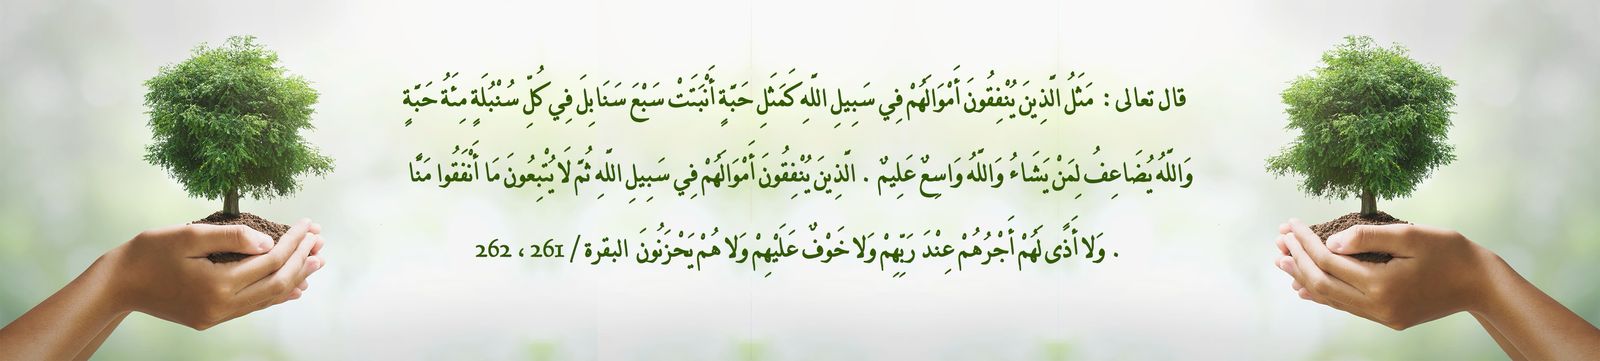 قال تعالى : مَثَلُ الَّذِينَ يُنْفِقُونَ أَمْوَالَهُمْ فِي سَبِيلِ اللَّهِ كَمَثَلِ حَبَّةٍ أَنْبَتَتْ سَبْعَ سَنَابِلَ فِي كُلِّ سُنْبُلَةٍ مِئَةُ حَبَّةٍ
وَاللَّهُ يُضَاعِفُ لِمَنْ يَشَاءُ وَاللَّهُ وَاسِعٌ عَلِيمٌ . الَّذِينَ يُنْفِقُونَ أَمْوَالَهُمْ فِي سَبِيلِ اللَّهِ ثُمَّ لَا يُتْبِعُونَ مَا أَنْفَقُوا مَنًّا
وَلا أَذًى لَهُمْ أَجْرُهُمْ عِنْدَ رَبِّهِمْ وَلا خَوْفٌ عَلَيْهِمْ وَلا هُمْ يَحْزَنُونَ البقرة / 261 ، 262 .